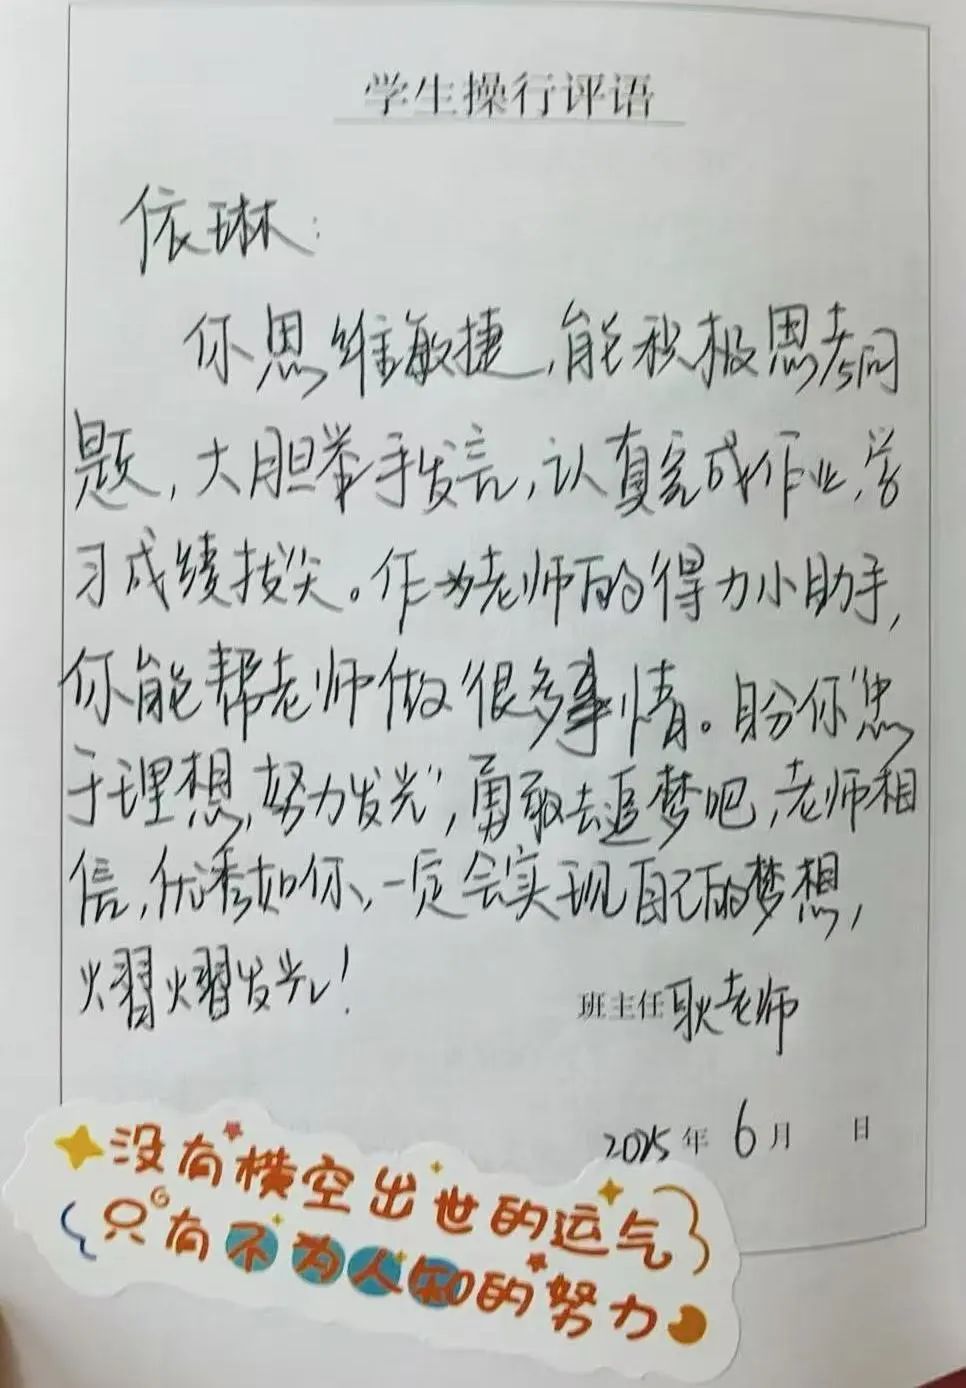 学生操行评语
依琳:
你思维敏捷,能积极思考问
题,大胆举手发言,认真完成作业,学
习成绩拔尖。作为老师的得力小助手,
你能帮老师做很多事情。盼你“忠
于理想,努力发光”,勇敢去追梦吧,老师相
信,优秀如你,一定会实现自己的梦想,
熠熠发光!
班主任 耿老师
2025年 6月 日
没有横空出世的运气
只有不为人知的努力